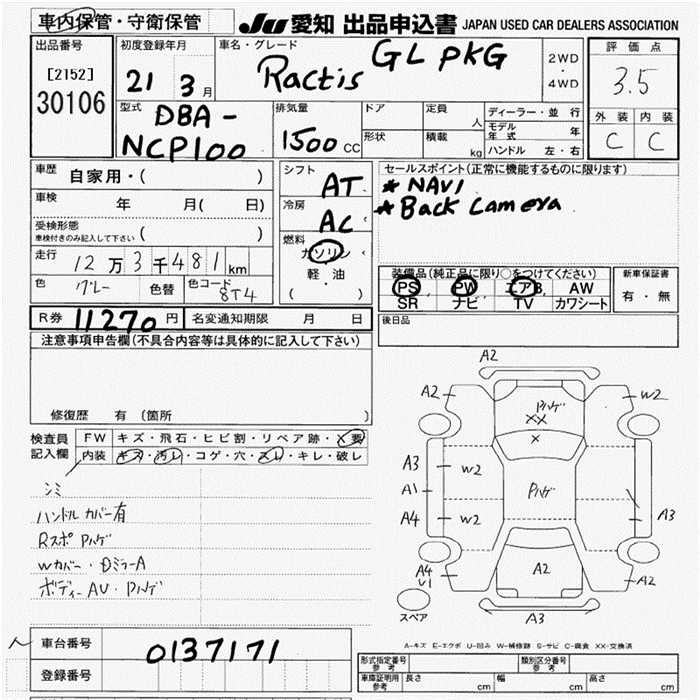 車内保管・守衛保管
JU 愛知 出品申込書 JAPAN USED CAR DEALERS ASSOCIATION
出品番号 初度登録年月 車名・グレード 2WD・4WD 評価点
[2152] 21 3月 Ractis GL PKG 3.5
30106
外装 内装
C C
型式 DBA-NCP100 排気量 1500CC ドア 定員 人
形状 積載 kg
ディーラー・並行
モデル年式 年
ハンドル 左・右
車歴 自家用・( )
シフト AT
セールスポイント(正常に機能するものに限ります)
* NAVI
* Back Camera
車検 年 月( 日)
冷房 AC
受検形態
車検付きのみ記入して下さい ( )
燃料 ガソリン
軽・油
( )
走行 12万3千481km
色 グレー 色替 色コード 8T4
装備品(純正品に限り○をつけてください) 新車保証書
PS PW エアB AW 有・無
SR ナビ TV カワシート
R券 11270円 名変通知期限 月 日
後日品
注意事項申告欄(不具合内容等は具体的に記入して下さい)
修復歴 有(箇所 )
検査員記入欄 FW キズ・飛石・ヒビ割・リペア跡・X要
内装 キズ・汚レ・コゲ・穴・スレ・キレ・破レ
シミ
ハンドルカバー有
Rスポ Pハゲ
Wカバー・DミラーA
ボディーAU・Pハゲ
A2
A2 Pハゲ W2
XX
X
A3 W2
A1 Pハゲ
A4 W2 A3
A4 A2 A2
U1
スペア A3
A-キズ E-エクボ U-凹み W-補修跡 S-サビ C-腐食 XX-交換済
車台番号 0137171
登録番号
型式指定番号 参考 類別区分番号 参考
車庫証明用 参考 長さ cm 幅 cm 高さ cm